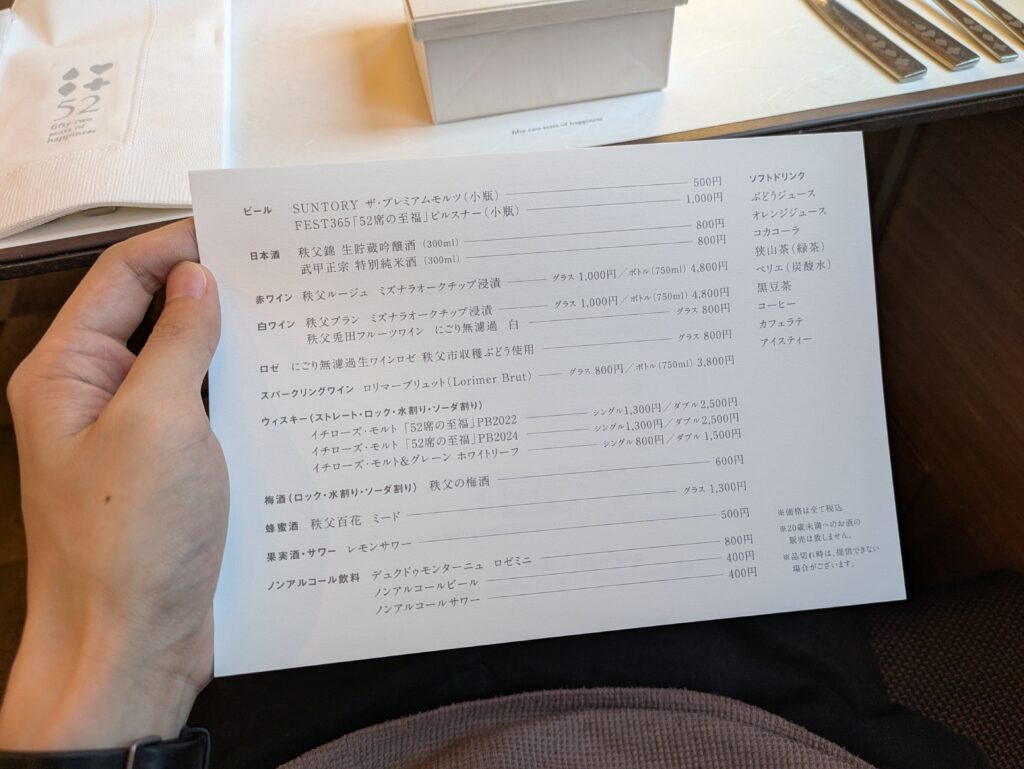 52
fifty-two
seats of
happiness
fifty-two seats of happiness
ビール SUNTORY ザ・プレミアムモルツ(小瓶) 500円
FEST365「52席の至福」ピルスナー(小瓶) 1,000円
日本酒 秩父錦 生貯蔵吟醸酒 (300ml) 800円
武甲正宗 特別純米酒 (300ml) 800円
赤ワイン 秩父ルージュ ミズナラオークチップ浸漬 グラス 1,000円/ボトル(750ml) 4,800円
白ワイン 秩父ブラン ミズナラオークチップ浸漬 グラス 1,000円/ボトル(750ml) 4,800円
秩父兎田フルーツワイン にごり無濾過 白 グラス 800円
ロゼ にごり無濾過生ワインロゼ 秩父市収穫ぶどう使用 グラス 800円
スパークリングワイン ロリマーブリュット(Lorimer Brut) グラス 800円/ボトル(750ml) 3,800円
ウィスキー(ストレート・ロック・水割り・ソーダ割り)
イチローズ・モルト 「52席の至福」PB2022 シングル1,300円/ダブル2,500円
イチローズ・モルト 「52席の至福」PB2024 シングル1,300円/ダブル2,500円
イチローズ・モルト&グレーン ホワイトリーフ シングル 800円/ダブル 1,500円
梅酒(ロック・水割り・ソーダ割り) 秩父の梅酒 600円
蜂蜜酒 秩父百花 ミード グラス 1,300円
果実酒・サワー レモンサワー 500円
ノンアルコール飲料 デュクドゥモンターニュ ロゼミニ 800円
ノンアルコールビール 400円
ノンアルコールサワー 400円
ソフトドリンク
ぶどうジュース
オレンジジュース
コカコーラ
狭山茶(緑茶)
ペリエ(炭酸水)
黒豆茶
コーヒー
カフェラテ
アイスティー
※価格は全て税込
※20歳未満へのお酒の
販売は致しません。
※品切れ時は、提供できない
場合がございます。